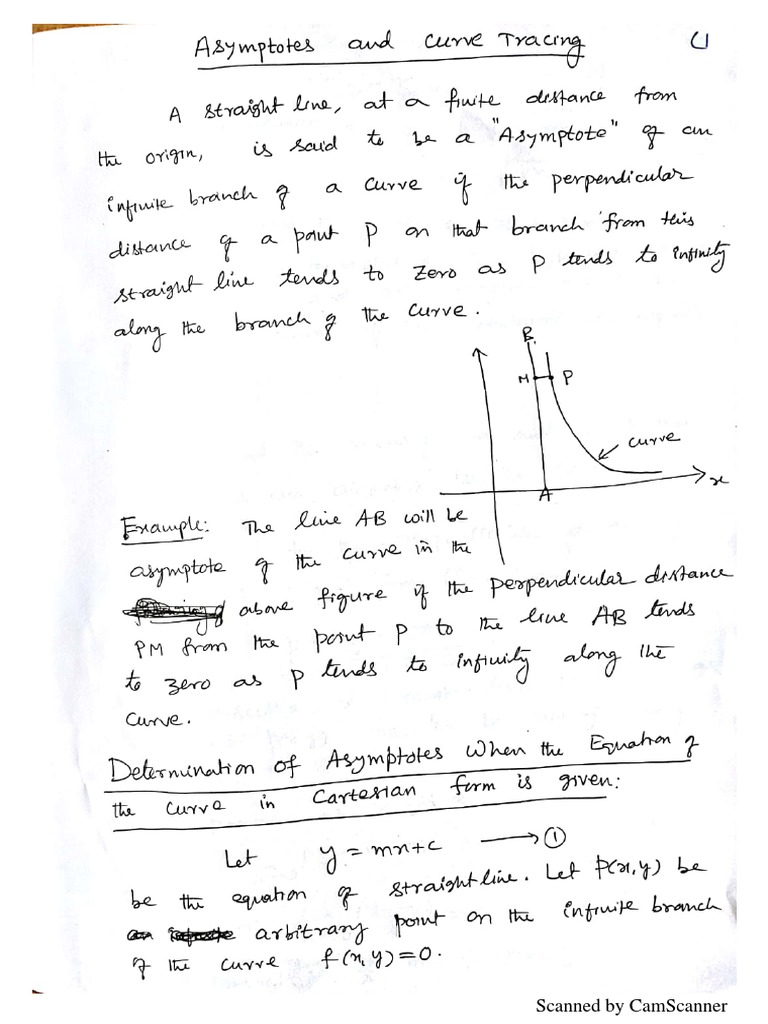 Asymptotes and Curve Tracing
A straight line, at a finite distance from
the origin, is said to be a "Asymptote" of an
infinite branch of a curve if the perpendicular
distance of a point P on that branch from this
straight line tends to zero as P tends to infinity
along the branch of the curve.
B.
M P
curve
x
A
Example: The line AB will be
asymptote of the curve in the
above figure if the perpendicular distance
PM from the point P to the line AB tends
to zero as P tends to infinity along the
curve.
Determination of Asymptotes When the Equation of
the curve in Cartesian form is given:
Let y = mx+c ⟶ ①
be the equation of straight line. Let P(x,y) be
arbitrary point on the infinite branch
of the curve f(x,y)=0.
Scanned by CamScanner